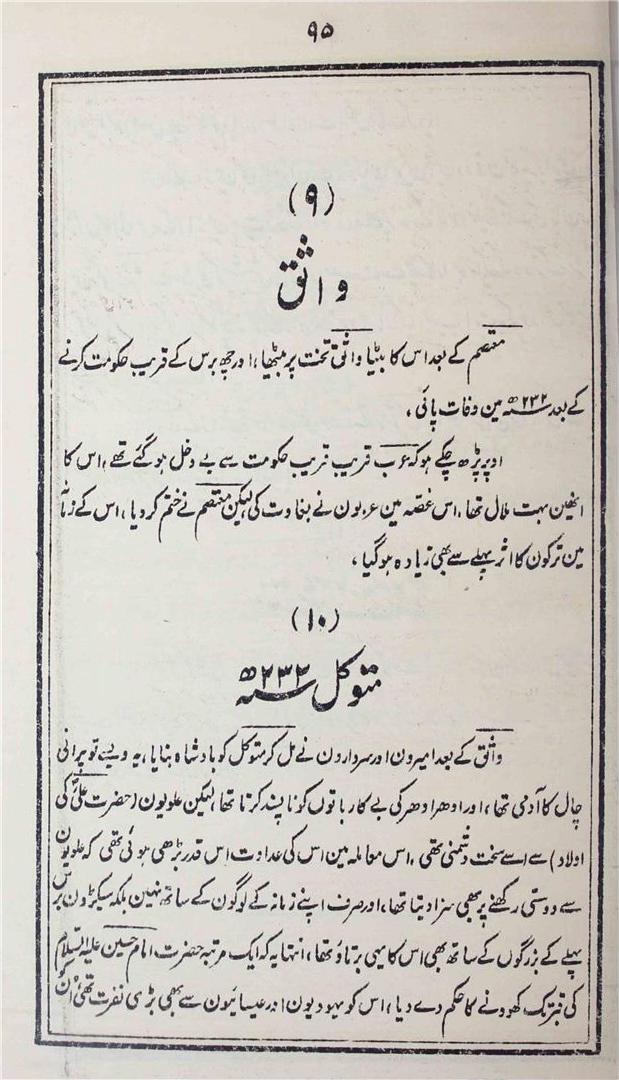 ۹۵
(۹)
واثق
معتصم کے بعد اس کا بیٹا واثق تخت پر بیٹھا، اور چھ برس کے قریب حکومت کرنے
کے بعد ۲۳۲ھ مین وفات پائی،
اوپر پڑھ چکے ہو کہ عرب قریب قریب حکومت سے بے دخل ہو گئے تھے، اس کا
انھین بہت ملال تھا، اس غصہ مین عربون نے بغاوت کی لیکن معتصم نے ختم کر دیا، اس کے زمانہ
مین ترکون کا اثر پہلے سے بھی زیادہ ہو گیا،
(۱۰)
متوکل ۲۳۲ھ
واثق کے بعد امیرون اور سردارون نے مل کر متوکل کو بادشاہ بنایا، یہ ویسے تو پرانی
چال کا آدمی تھا، اور ادھر ادھر کی بے کار باتوں کو ناپسند کرتا تھا، لیکن علویون (حضرت علیؓ کی
اولاد) سے اسے سخت دشمنی تھی، اس معاملہ مین اس کی عداوت اس قدر بڑھی ہوئی تھی کہ علویون
سے دوستی رکھنے پر بھی سزا دیتا تھا، اور صرف اپنے زمانہ کے لوگون کے ساتھ نہین بلکہ سیکڑون برس
پہلے کے بزرگوں کے ساتھ بھی اس کا یہی برتاؤ تھا، انتہا یہ کہ ایک مرتبہ حضرت امام حسین علیہ السلام
کی قبر تک کھودنے کا حکم دے دیا، اس کو یہودیون اور عیسائیون سے بھی بڑی نفرت تھی، ان کی